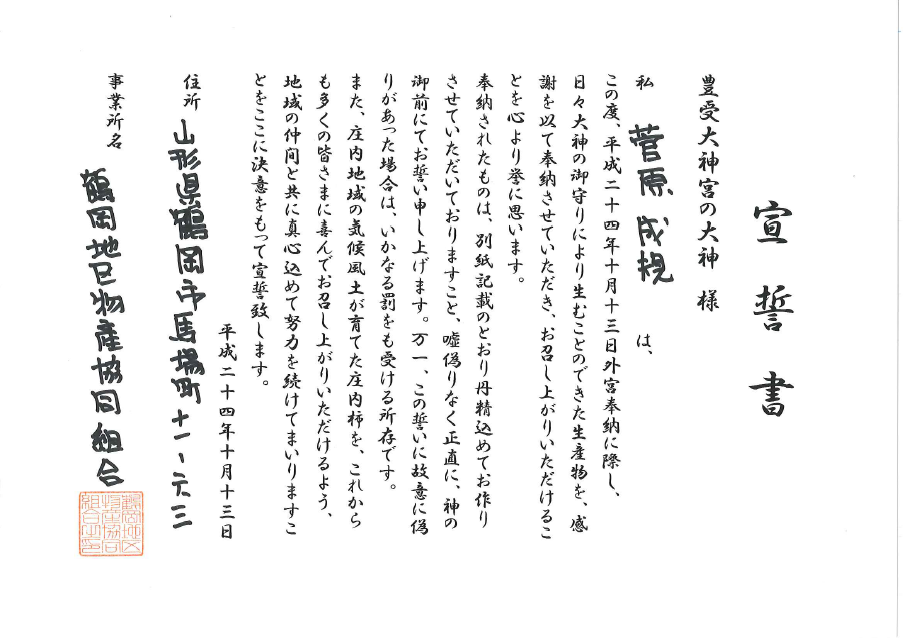 宣誓書
豊受大神宮の大神 様
私 菅原成規 は、
この度、平成二十四年十月十三日外宮奉納に際し、
日々大神の御守りにより生むことのできた生産物を、感
謝を以て奉納させていただき、お召し上がりいただけるこ
とを心より誉に思います。
奉納されたものは、別紙記載のとおり丹精込めてお作り
させていただいておりますこと、嘘偽りなく正直に、神の
御前にてお誓い申し上げます。万一、この誓いに故意に偽
りがあった場合は、いかなる罰をも受ける所存です。
また、庄内地域の気候風土が育てた庄内柿を、これから
も多くの皆さまに喜んでお召し上がりいただけるよう、
地域の仲間と共に真心込めて努力を続けてまいりますこ
とをここに決意をもって宣誓致します。
平成二十四年十月十三日
住所 山形県鶴岡市馬場町十一-六三
事業所名 鶴岡地区物産協同組合
鶴岡地区
物産協同
組合之印